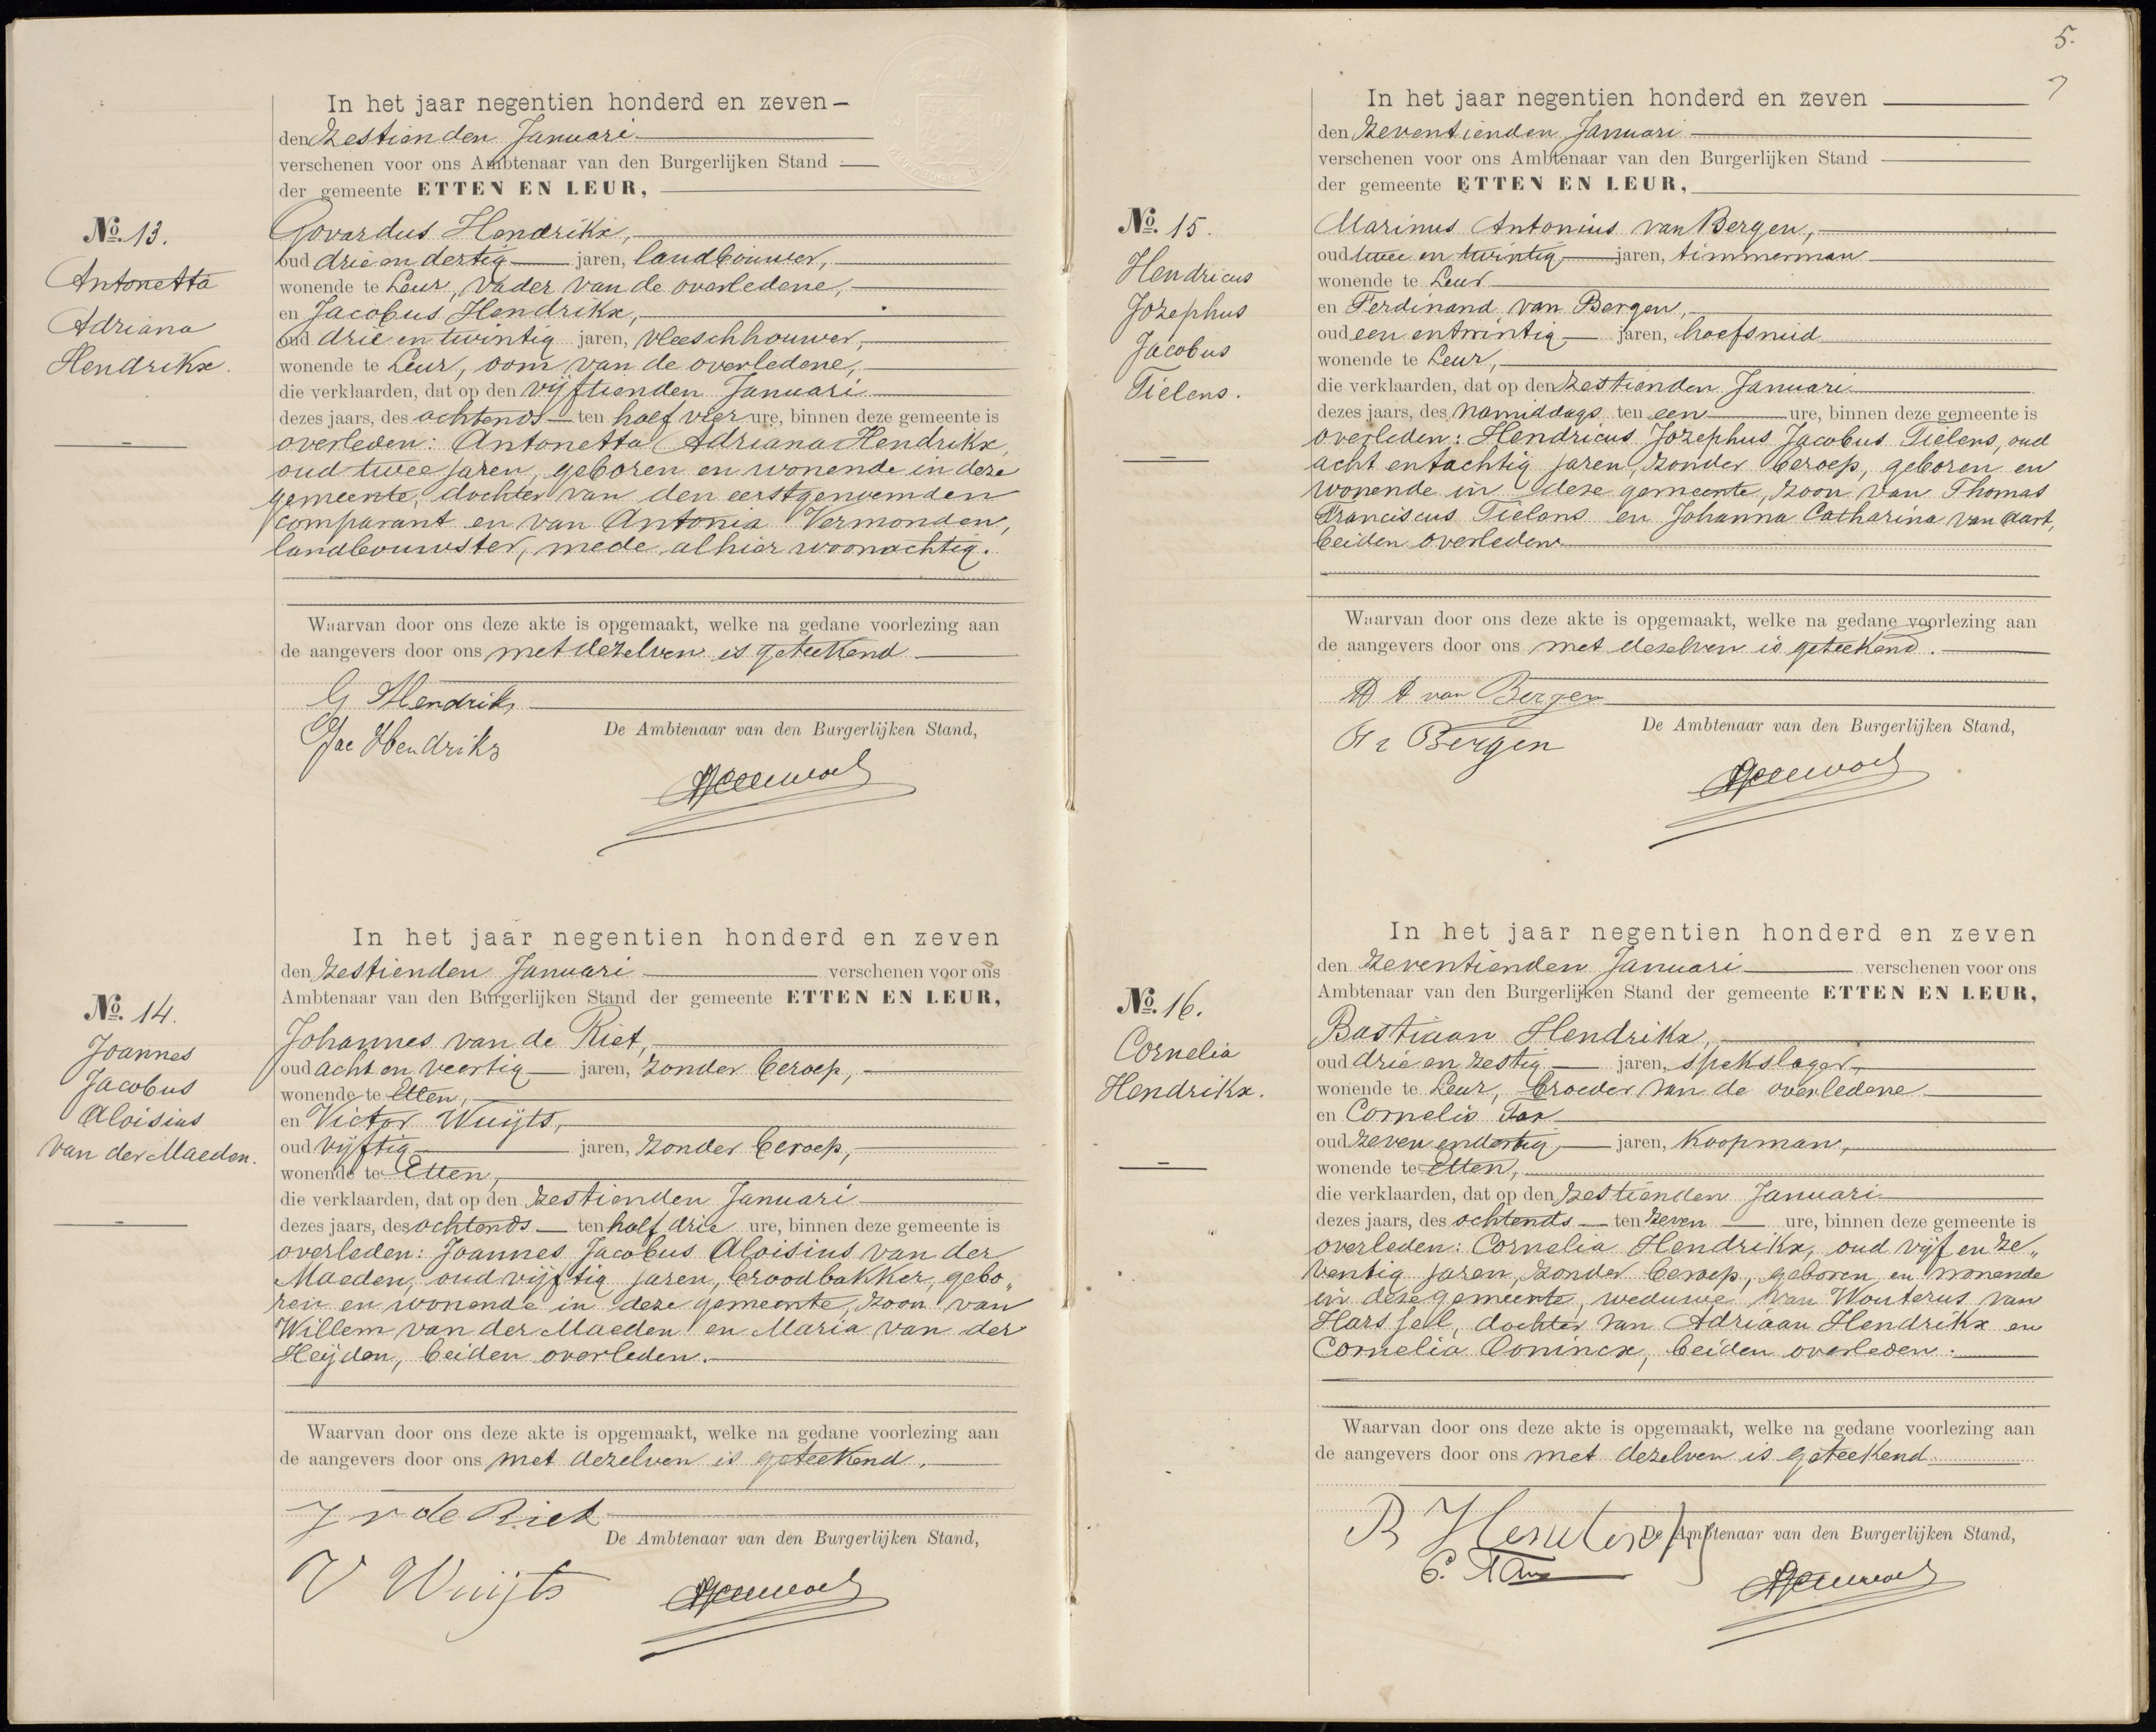 In het jaar negentien honderd en zeven
den zestienden Januari
verschenen voor ons Ambtenaar van den Burgerlijken Stand
der gemeente ETTEN EN LEUR,
No. 13.
Antonetta
Adriana
Hendrikx.
Govardus Hendrikx,
oud drie en dertig jaren, landbouwer,
wonende te Leur, vader van de overledene,
en Jacobus Hendrikx,
oud drie en twintig jaren, vleeschhouwer,
wonende te Leur, oom van de overledene,
die verklaarden, dat op den vijftienden Januari
dezes jaars, des ochtends ten half vier ure, binnen deze gemeente is
overleden: Antonetta Adriana Hendrikx,
oud twee jaren, geboren en wonende in deze
gemeente, dochter van den eerstgenoemden
comparant en van Antonia Vermonden,
landbouwster, mede alhier woonachtig.
Waarvan door ons deze akte is opgemaakt, welke na gedane voorlezing aan
de aangevers door ons met dezelven is geteekend
G Hendriks
Jac Hendriks
De Ambtenaar van den Burgerlijken Stand,
In het jaar negentien honderd en zeven
den zestienden Januari verschenen voor ons
Ambtenaar van den Burgerlijken Stand der gemeente ETTEN EN LEUR,
No. 14.
Joannes
Jacobus
Aloisius
van der Maeden.
Johannes van de Riet,
oud acht en veertig jaren, zonder beroep,
wonende te Etten,
en Victor Wuijts,
oud vijftig jaren, zonder beroep,
wonende te Etten,
die verklaarden, dat op den zestienden Januari
dezes jaars, des ochtends ten half drie ure, binnen deze gemeente is
overleden: Joannes Jacobus Aloisius van der
Maeden, oud vijftig jaren, broodbakker, gebo„
ren en wonende in deze gemeente, zoon van
Willem van der Maeden en Maria van der
Heijden, beiden overleden.
Waarvan door ons deze akte is opgemaakt, welke na gedane voorlezing aan
de aangevers door ons met dezelven is geteekend.
J v de Riet
De Ambtenaar van den Burgerlijken Stand,
V Wuijts
5.
7
In het jaar negentien honderd en zeven
den zeventienden Januari
verschenen voor ons Ambtenaar van den Burgerlijken Stand
der gemeente ETTEN EN LEUR,
No. 15.
Hendricus
Jozephus
Jacobus
Tielens.
Marinus Antonius van Bergen,
oud twee en twintig jaren, timmerman
wonende te Leur
en Ferdinand van Bergen,
oud een en twintig jaren, hoefsmid
wonende te Leur,
die verklaarden, dat op den zestienden Januari
dezes jaars, des namiddags ten een ure, binnen deze gemeente is
overleden: Hendricus Jozephus Jacobus Tielens, oud
acht en tachtig jaren, zonder beroep, geboren en
wonende in deze gemeente, zoon van Thomas
Franciscus Tielens en Johanna Catharina van Aart,
beiden overleden
Waarvan door ons deze akte is opgemaakt, welke na gedane voorlezing aan
de aangevers door ons met dezelven is geteekend.
M A van Bergen
F v Bergen
De Ambtenaar van den Burgerlijken Stand,
In het jaar negentien honderd en zeven
den zeventienden Januari verschenen voor ons
Ambtenaar van den Burgerlijken Stand der gemeente ETTEN EN LEUR,
No. 16.
Cornelia
Hendrikx.
Bastiaan Hendrikx,
oud drie en zestig jaren, spekslager,
wonende te Leur, broeder van de overledene
en Cornelis Tax
oud zeven en dertig jaren, koopman,
wonende te Etten,
die verklaarden, dat op den zestienden Januari
dezes jaars, des ochtends ten zeven ure, binnen deze gemeente is
overleden: Cornelia Hendrikx, oud vijf en ze„
ventig jaren, zonder beroep, geboren en wonende
in deze gemeente, weduwe van Wouterus van
Harssell, dochter van Adriaan Hendrikx en
Cornelia Conincx, beiden overleden.
Waarvan door ons deze akte is opgemaakt, welke na gedane voorlezing aan
de aangevers door ons met dezelven is geteekend
B Hendrikx
De Ambtenaar van den Burgerlijken Stand,